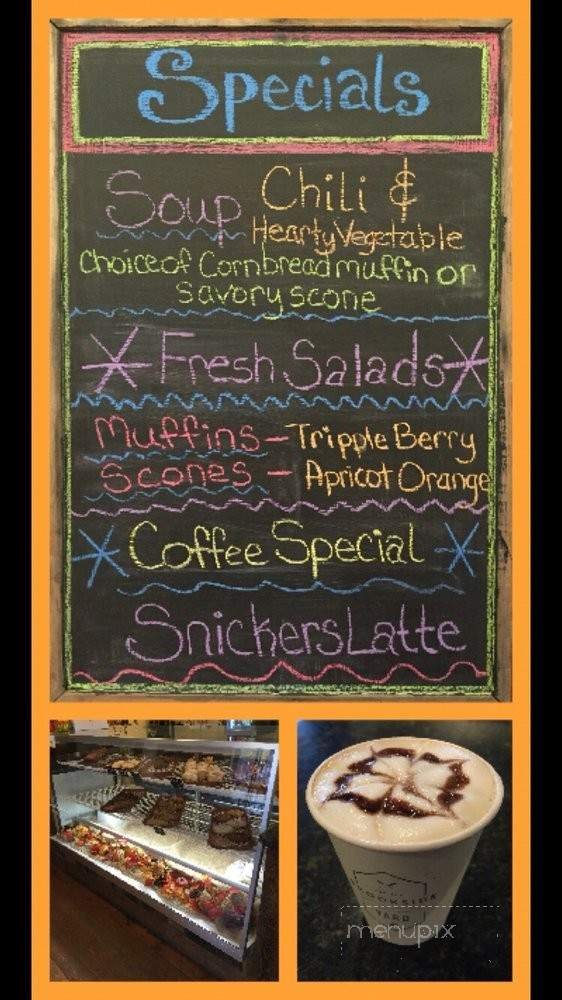 Specials
Soup Chili &
Hearty Vegetable
Choice of Cornbread muffin or
savory scone
Fresh Salads
Muffins - Tripple Berry
Scones - Apricot Orange
Coffee Special
Snickers Latte
YARD
menupix